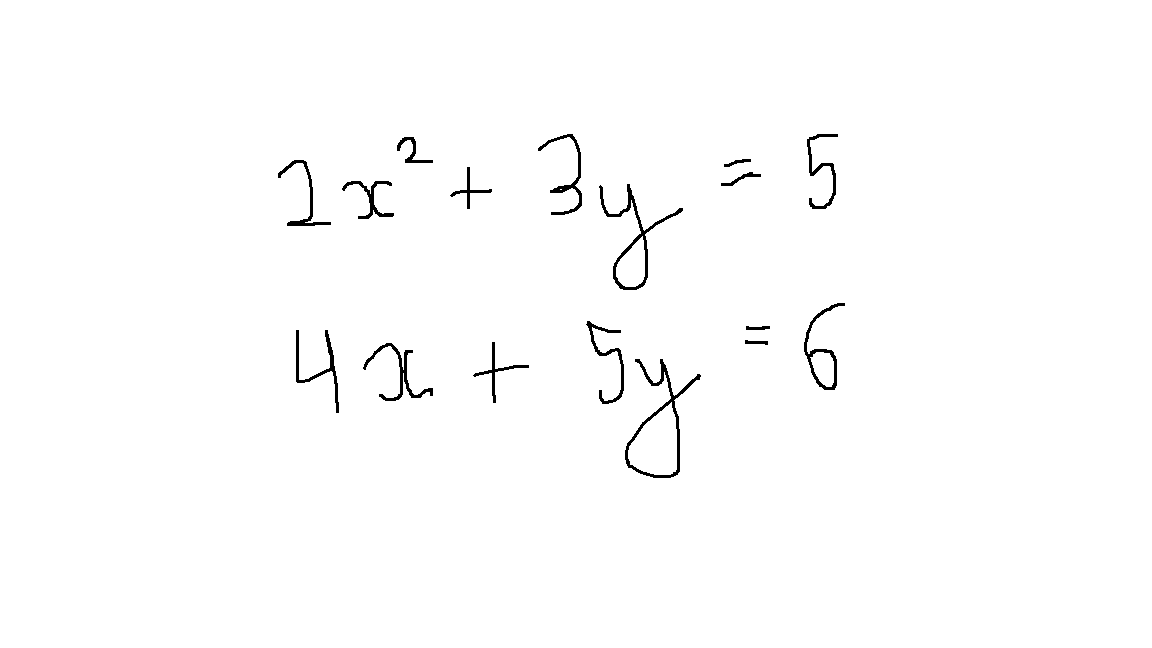 2x² + 3y = 5
4x + 5y = 6